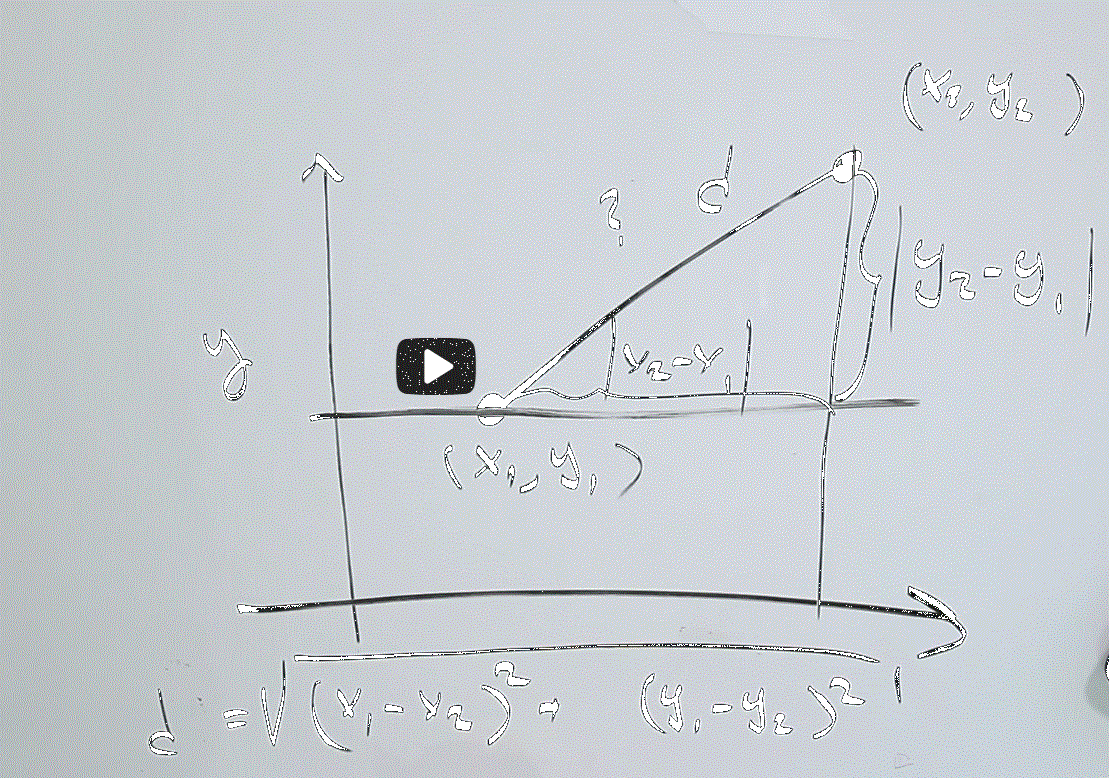 (x₂, y₂)
? d
|y₂-y₁|
y
|x₂-x₁|
(x₁, y₁)
d = √(x₁-x₂)² + (y₁-y₂)²